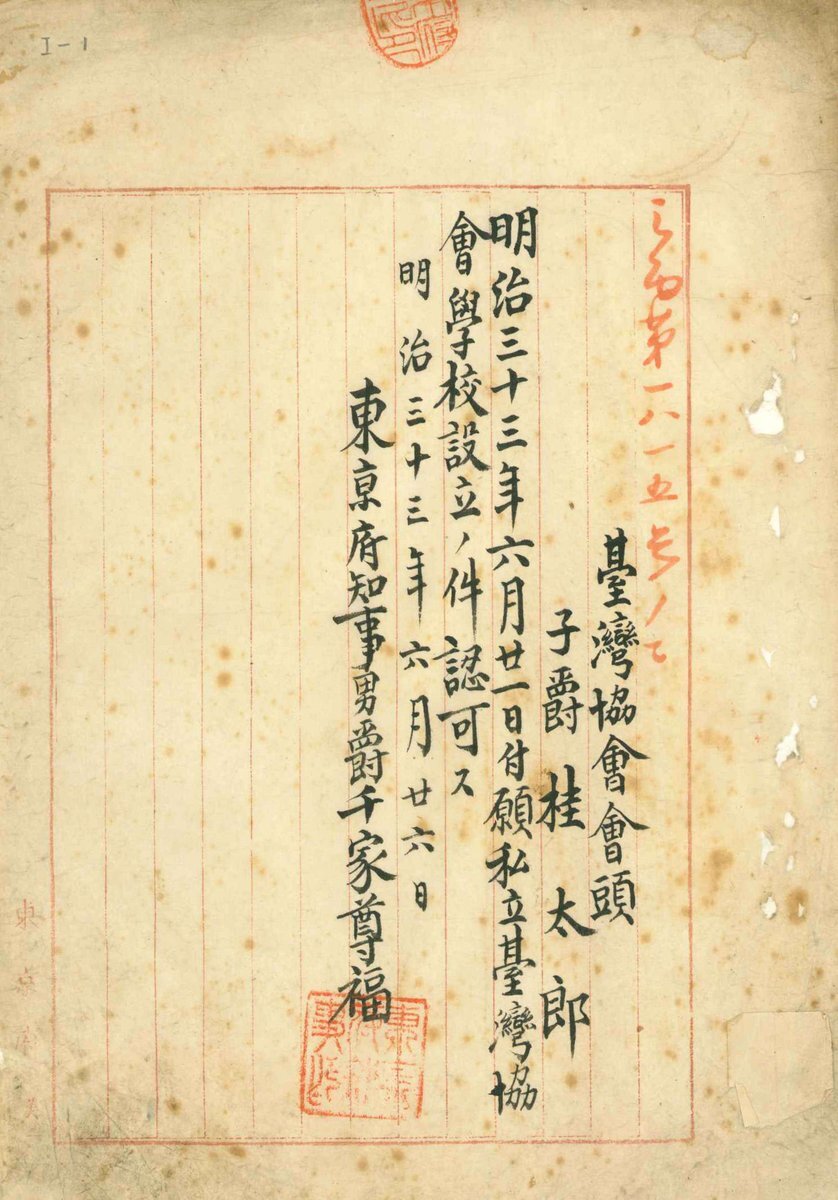 I-1
第一八一五号ノ
臺灣協會會頭
子爵桂太郎
明治三十三年六月廿一日付願私立臺灣協
會學校設立ノ件認可ス
明治三十三年六月廿六日
東京府知事男爵千家尊福